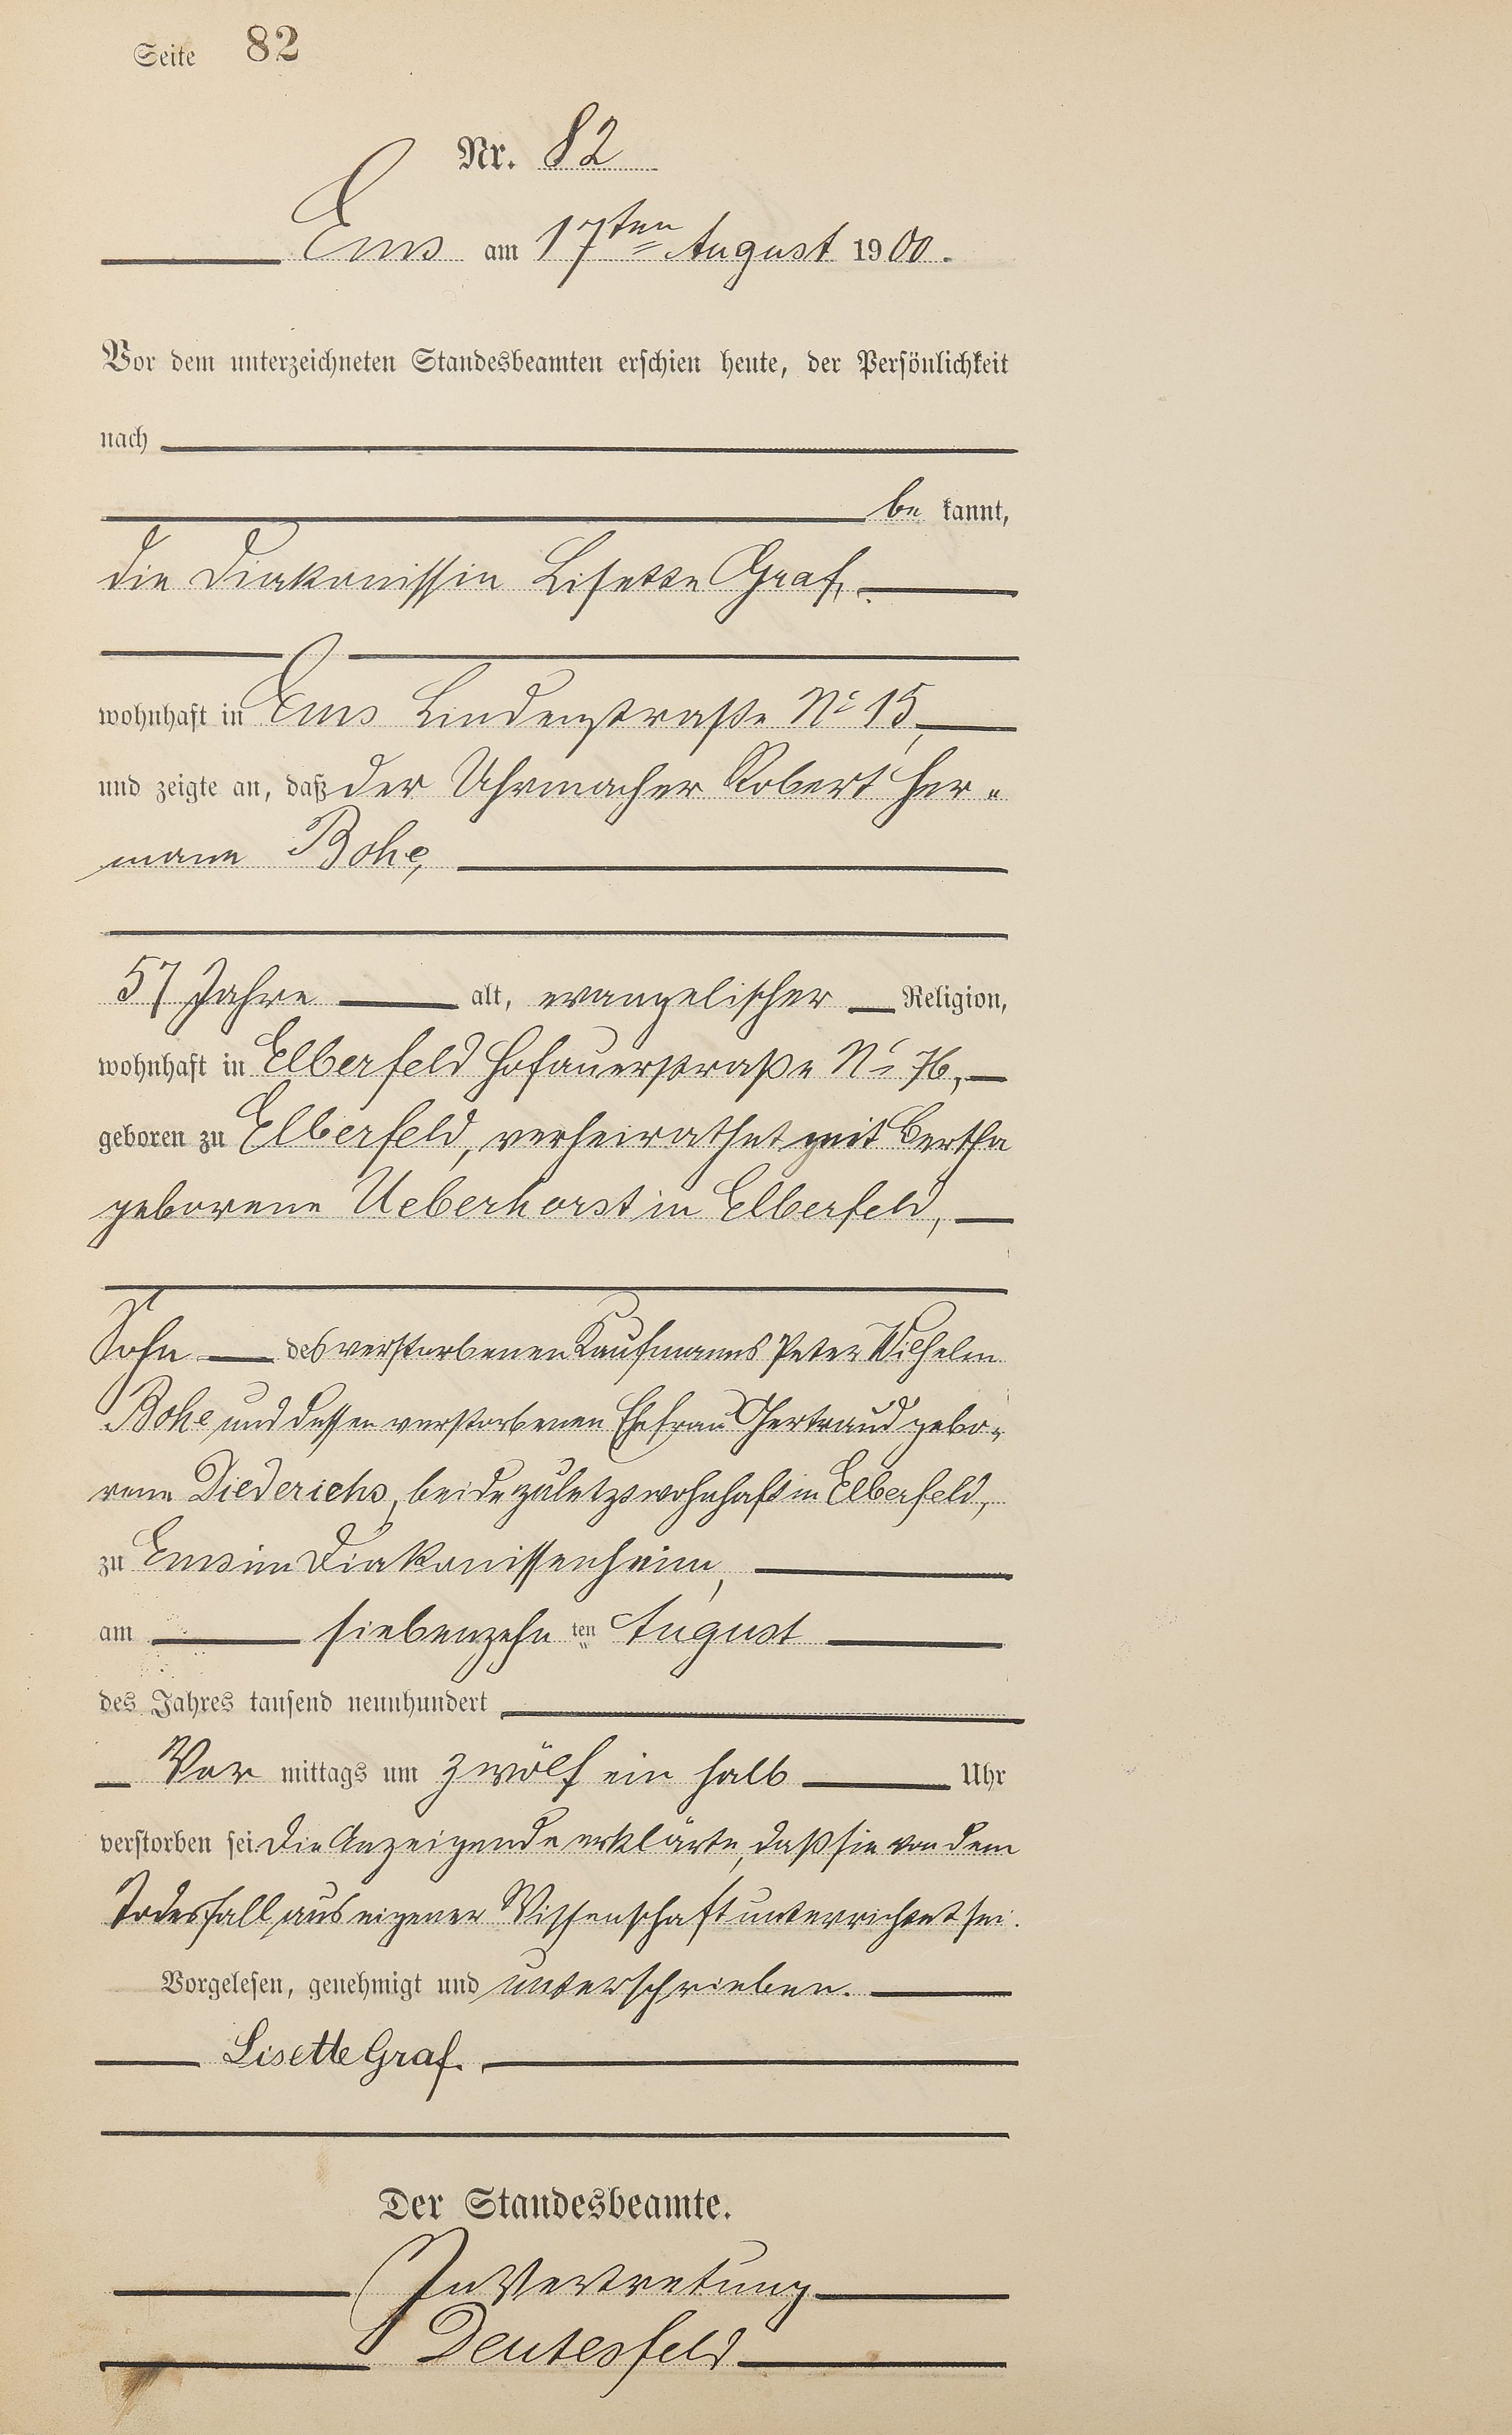 Seite 82
Nr. 82
Ems am 17ten August 1900.
Vor dem unterzeichneten Standesbeamten erschien heute, der Persönlichkeit
nach
be kannt,
die Diakonissin Lisette Graf,
wohnhaft in Ems Lindenstraße No 15,
und zeigte an, daß der Uhrmacher Robert Her-
mann Bohe,
57 Jahre alt, evangelischer Religion,
wohnhaft in Elberfeld Hofauerstraße No 76,
geboren zu Elberfeld, verheirathet mit Bertha
geborene Ueberhorst in Elberfeld,
Sohn des verstorbenen Kaufmanns Peter Wilhelm
Bohe und dessen verstorbenen Ehefrau Gertraud gebo-
rene Diederichs, beide zuletzt wohnhaft in Elberfeld,
zu Ems im Diakonissenheim,
am siebenzehn ten August
des Jahres tausend neunhundert
Vor mittags um zwölf ein halb Uhr
verstorben sei. Die Anzeigende erklärte, daß sie von dem
Todesfall aus eigener Wissenschaft unterrichtet sei.
Vorgelesen, genehmigt und unterschrieben.
Lisette Graf.
Der Standesbeamte.
In Vertretung
Deutesfeld